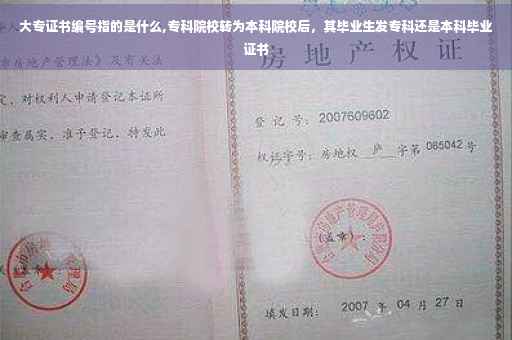 大专证书编号指的是什么,专科院校转为本科院校后，其毕业生发专科还是本科毕业
证书
房地产管理法》及有关法
定，对权利人申请登记本证所
审查属实，准予登记，特发此
房地产权证
登记号：2007609602
权证字号：房地权 庐 字第 085042 号
(盖章)：
填发日期：2007 年 04 月 27 日